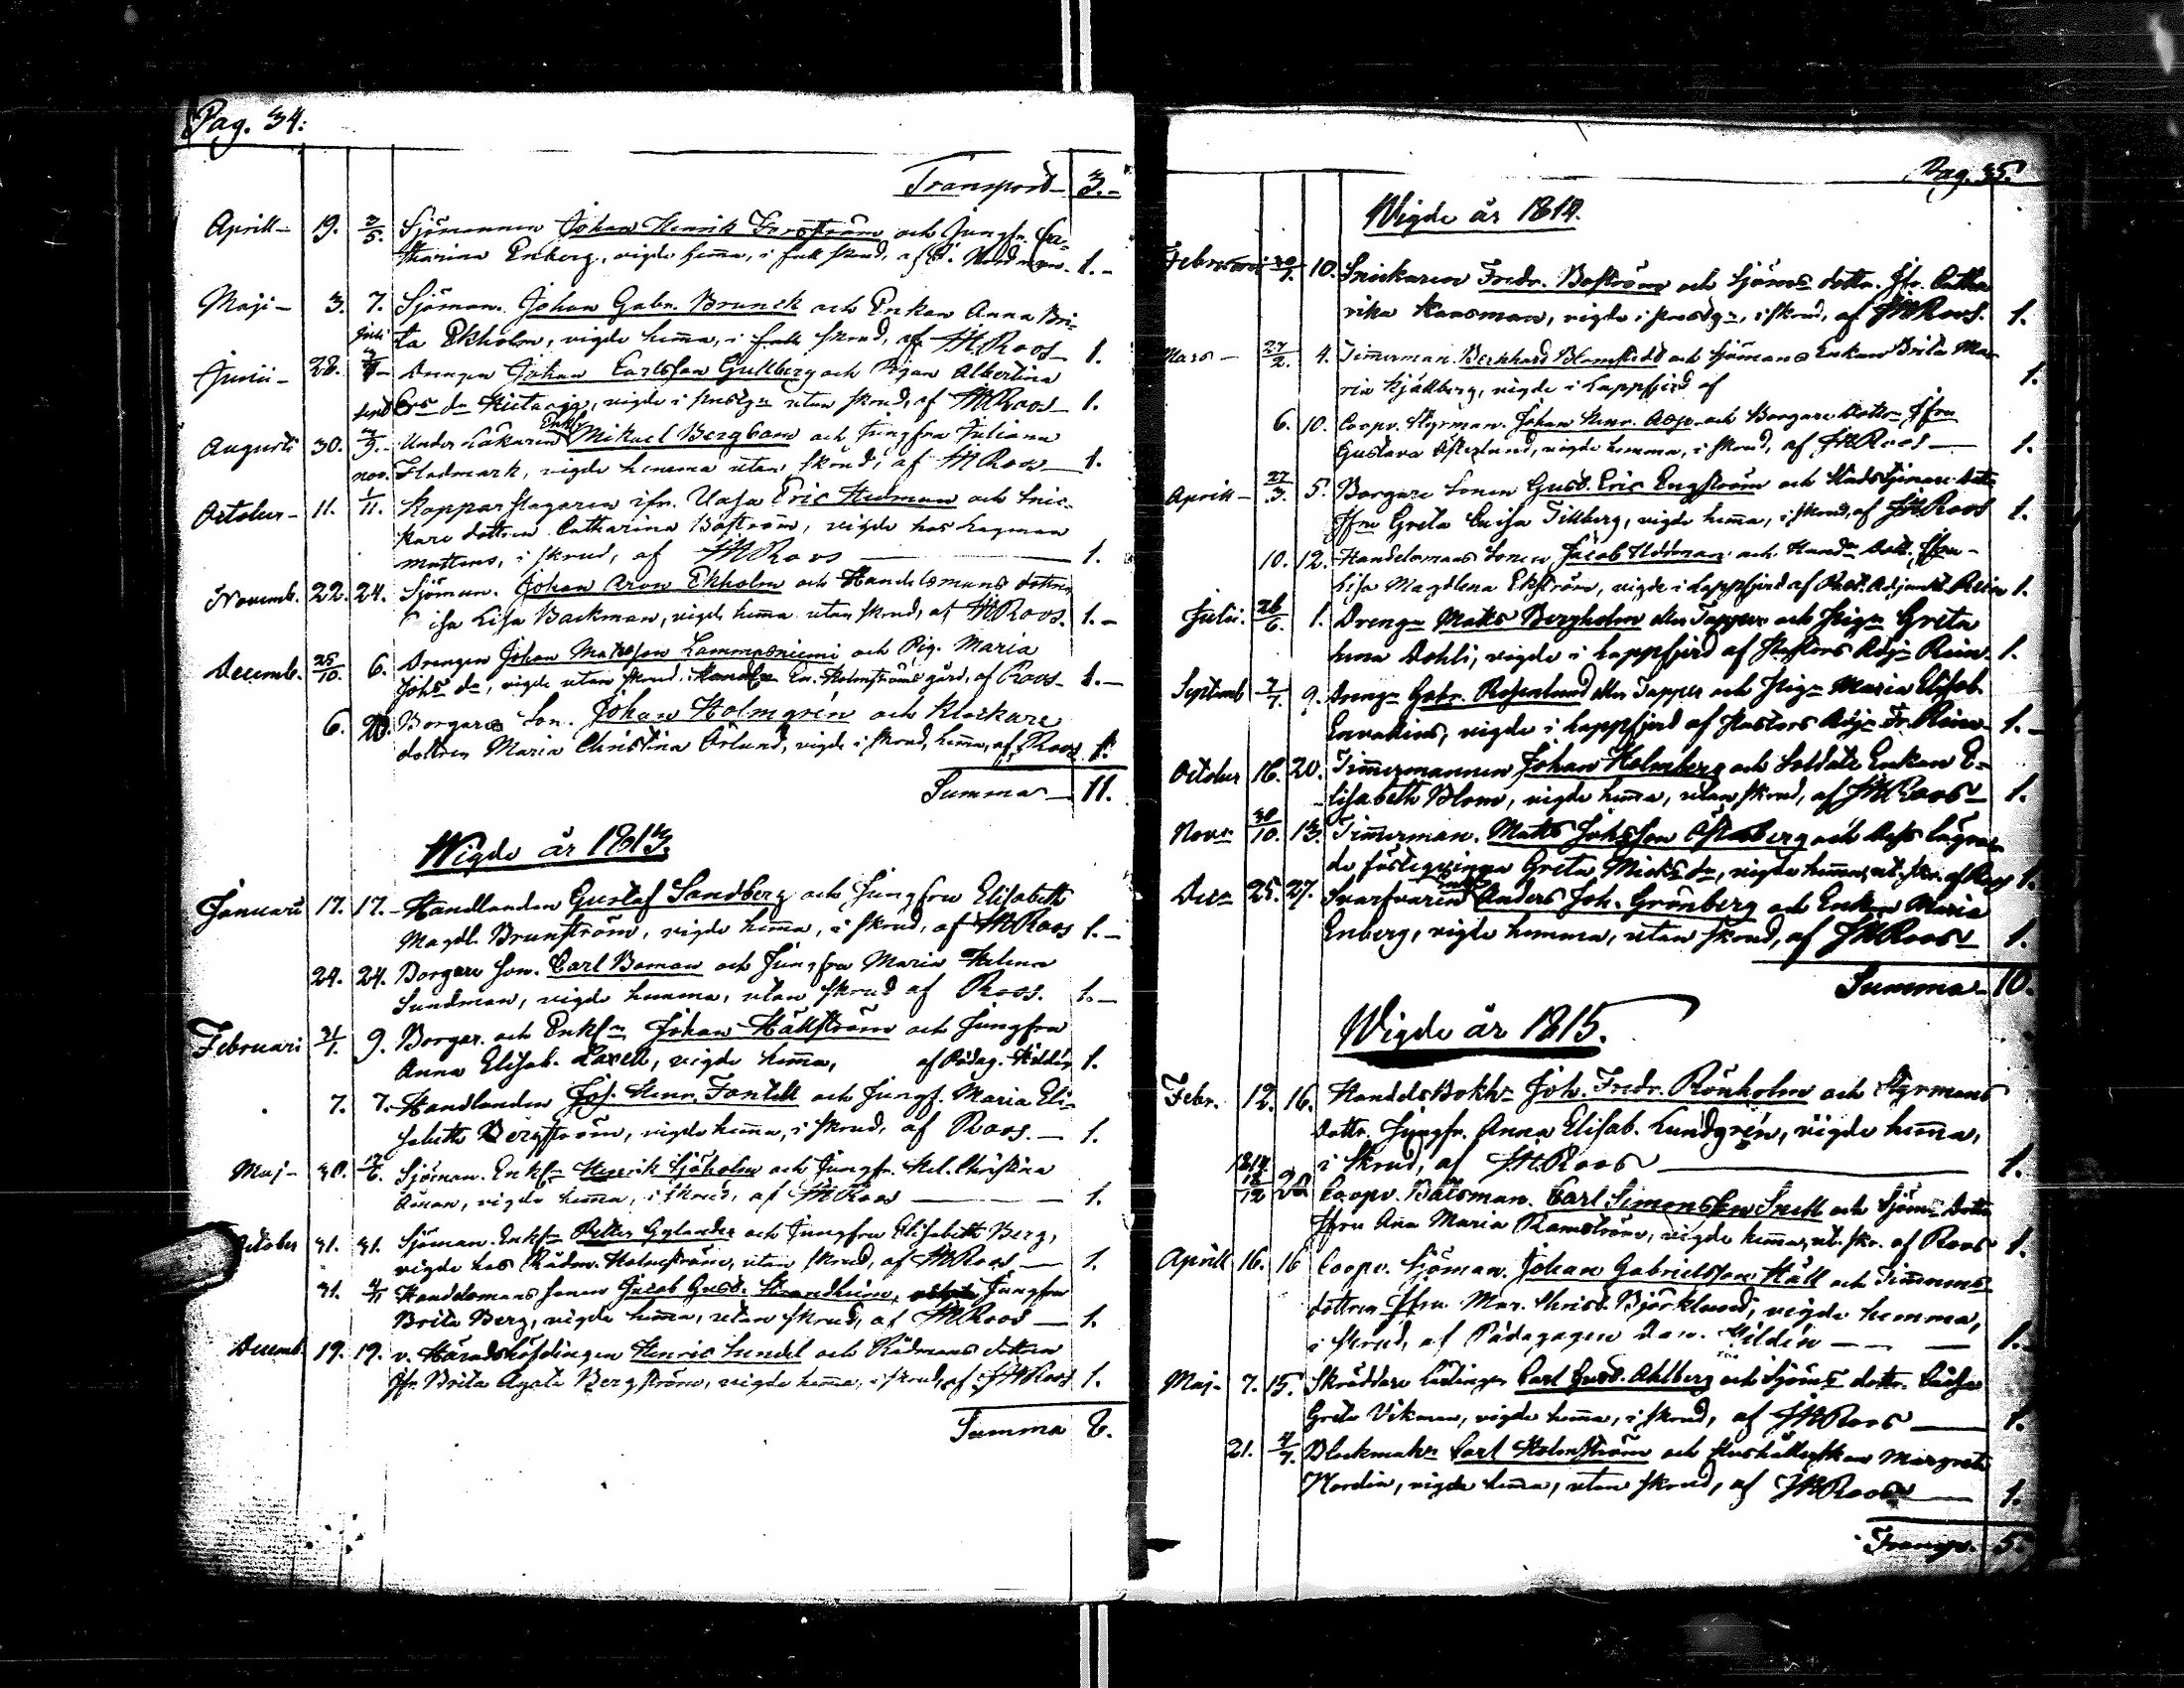 Pag. 34:
Transport 3.-
Aprill- 19. 2/5. Sjömannen Johan Henrik Forsström och Jungfr. Ca-
tharina Enberg, vigde hem̅a, i full skrud, af C. Nordman. 1.-
Maji- 3. 7. Sjöman. Johan Gabr. Brunck och Enkan Anna Bri-
ta Ekholm, vigde hem̅a, i full skrud, af JHRoos- 1.
Junii- 28. Juli Drengen Johan Carlsson Gullberg och Pigan Albertina
Ers dr Hietaoja, vigde i prestgn utan skrud, af JHRoos- 1.
Augusti 30. Sept Under Läkaren Enkl. Mikael Bergbom och Jungfru Juliana
Flodmark, vigde hemma utan skrud, af JHRoos- 1.
October- 11. nov. 1/11. Kopparslagaren ifr. Vasa Eric Hedman och Snic-
kare dottren Catharina Boström, vigde hos Lagman
mattens, i skrud, af JHRoos 1.
Novemb. 22. 24. Sjöman. Johan Aron Ekholm och Handelsmans dottren
Lisa Backman, vigde hem̅a utan skrud, af JHRoos. 1.-
Decemb. 25/10. 6. Drengen Johan Matsson Lammasniemi och Pig. Maria
Johs dr, vigde utan skrud, i Handln En. Holmströms gård, af Roos- 1.-
6. Borgare Son. Johan Holmgrén och Klockare
dottren Maria Christina Örlund, vigde i skrud, hem̅a, af Roos 1.
Summa- 11.
Wigde år 1813.
Januari 17. 17. Handlanden Gustaf Sandberg och Jungfru Elisabeth
Magdl. Brunström, vigde hem̅a, i skrud, af JHRoos 1.-
24. 24. Borgare Son. Carl Boman och Jungfru Maria Helena
Sundman, vigde hemma, utan skrud af Roos. 1.-
Februari 31/1. 9. Borgar. och Enkln Johan Hällström och Jungfru
Anna Elisab. Laxell, vigde hem̅a, af Pädag. Hildén 1.
7. 7. Handlanden Joh. Henr. Fontell och Jungf. Maria Eli-
sabeth Bergström, vigde hem̅a, i skrud, af Roos.- 1.
Maj- 30. Sjöman. Enklm Henrik Sjöholm och Jungfr. Hel. Christina
Åman, vigde hem̅a, i skrud, af JHRoos 1.
October 31. 31. Sjöman. Enklm Petter Gylander och Jungfru Elisabeth Berg,
vigde hos Rådm. Holmström, utan skrud, af JHRoos- 1.
31. 4/11 Handelsmans Sonen Jacob Gust. Strandheim, Jungfru
Brita Berg, vigde hem̅a, utan skrud, af JHRoos- 1.
Decemb. 19. 19. v. Häradshöfdingen Henric Lundel och Rådmans dottren
Jfr. Brita Agata Bergström, vigde hem̅a, i skrud, af JHRoos 1.
Summa 8.
Pag. 35.
Wigde år 1814.
Februari 30/1. 10. Snickaren Fredr. Boström och Sjöms dottr. Jfr. Catha
rina Kaasman, vigde i prestgn, i skrud, af JHRoos. 1.
Mars- 27/2. 4. Tim̅erman. Bernhard Blomstedt och Sjömans Enkan Brita Ma-
ria Kjällberg, vigde i Lappfjerd af 1.
6. 10. Coopv. Styrman. Johan Henr. Asp och Borgare dottr. Jfru
Gustava Österlund, vigde hemma, i skrud, af JHRoos- 1.
Aprill- 27/3. 5. Borgare Sonen Gust. Eric Engström och Stadstjenare dottr
Jfru Greta Caisa Tillberg, vigde hem̅a, i skrud, af JHRoos 1.
10. 12. Handelsmans Sonen Jacob Uddman och Handn dott. Jfru-
Lisa Magdlena Ekström, vigde i Lappfjerd af Past. Adjunct. Rein 1.
Julii. 26/6. 1. Drengn Matts Bergholm eller Tapper och Pign Greta
Lena Dahli, vigde i Lappfjerd af Pastors Adjn Rein. 1.
Septemb 9. Drengn Gabr. Rosenlund eller Tapper och Pign Maria Elisab.
vigde i Lappfjerd af Pastors Adjn Fr. Rein- 1.-
October 16. 20. Tim̅ermannen Johan Holmberg och Soldats Enkan E-
lisabeth Blom, vigde hem̅a, utan skrud, af JHRoos- 1.
Novr 30/10. 13. Tim̅erman. Matts Johsson Östesberg och dess lägrade
fästeqvinna Greta Micks dr, vigde hem̅a, ut. skr. af Roos 1.
Decr 25. 27. Svarfvaren Anders Joh. Grönberg och Enkan Maria
Enberg, vigde hemma, utan skrud, af JHRoos- 1.
Summa- 10.
Wigde år 1815.
Febr. 12. 16. HandelsBokhr Joh. Fredr. Rönholm och Styrmans
dottr. Jungfr. Anna Elisab. Lundgrén, vigde hem̅a,
i skrud, af JHRoos 1.
1814 18/12 20 Coopv. Båtsman. Carl Simonsson Snell och Sjöms Dottr
Jfru Ana Maria Ramström, vigde hem̅a, ut. skr. af Roos 1.
Aprill 16. 16 Coopv. Sjöman. Johan Gabrielsson Häll och Tim̅erms
dottren Jfru. Mar. Christ. Björklund, vigde hemma,
i skrud, af Pädagogen Dan. Hildén 1.
Maj- 7. 15. Skräddare Lärlingen Carl Gust. Ahlberg och Sjöms dottr. Caisa
Greta Vikman, vigde hem̅a, i skrud, af JHRoos 1.
21. 4/7. Blockmakr Carl Holmström och Hushållerskan Margreta
Nordin, vigde hem̅a, utan skrud, af JHRoos 1.
Transp. 5.